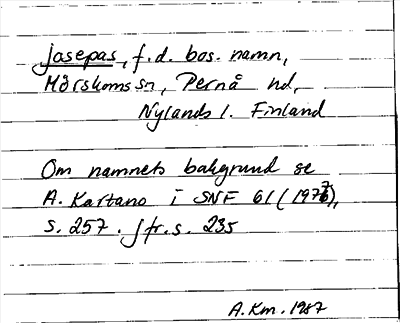 Josepas, f.d. bos. namn,
Mörskoms sn, Pernå hd,
Nylands l. Finland
Om namnets bakgrund se
A. Kartano i SNF 61 (1977),
s. 257. Jfr. s. 235
A.Km. 1987